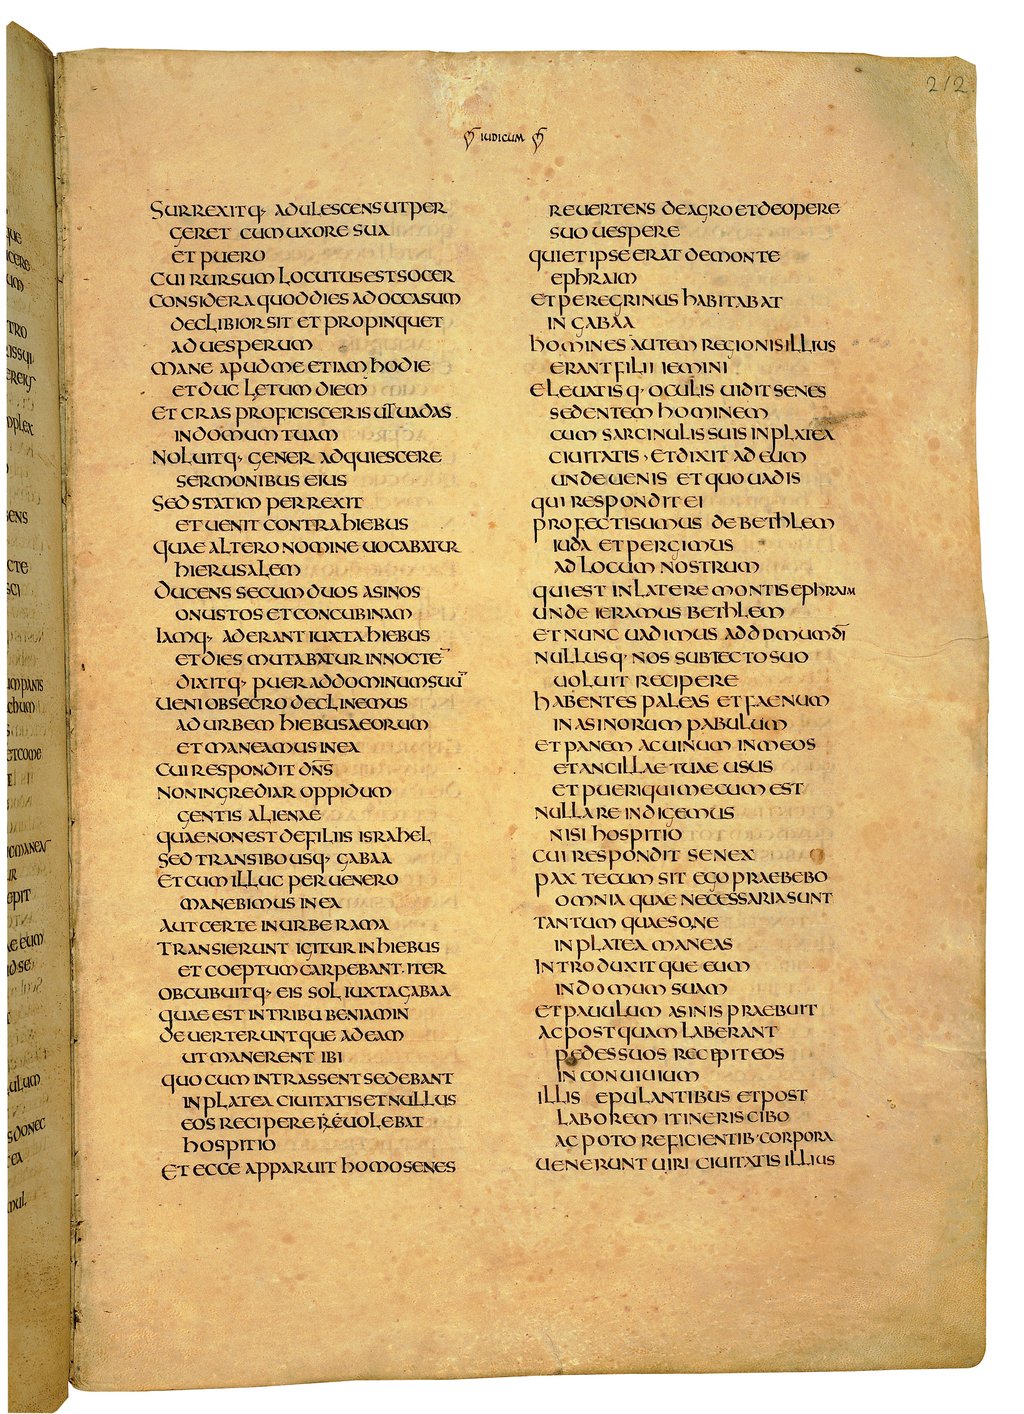 212
IUDICUM
SURREXITQ· ADULESCENS UT PER
GERET CUM UXORE SUA
ET PUERO
CUI RURSUM LOCUTUS EST SOCER
CONSIDERA QUOD DIES AD OCCASUM
DECLIBIOR SIT ET PROPINQUET
AD UESPERUM
MANE APUD ME ETIAM HODIE
ET DUC LETUM DIEM
ET CRAS PROFICISCERIS UT UADAS
IN DOMUM TUAM
NOLUITQ· GENER ADQUIESCERE
SERMONIBUS EIUS
SED STATIM PERREXIT
ET UENIT CONTRA HIEBUS
QUAE ALTERO NOMINE UOCABATUR
HIERUSALEM
DUCENS SECUM DUOS ASINOS
ONUSTOS ET CONCUBINAM
IAMQ· ADERANT IUXTA HIEBUS
ET DIES MUTABATUR IN NOCTE¯
DIXITQ· PUER AD DOMINUM SUU¯
UENI OBSECRO DECLINEMUS
AD URBEM HIEBUSAEORUM
ET MANEAMUS IN EA
CUI RESPONDIT DN̅S̅
NON INGREDIAR OPPIDUM
GENTIS ALIENAE
QUAE NON EST DE FILIIS ISRAHEL
SED TRANSIBO USQ· GABAA
ET CUM ILLUC PERUENERO
MANEBIMUS IN EA
AUT CERTE IN URBE RAMA
TRANSIERUNT IGITUR IN HIEBUS
ET COEPTUM CARPEBANT· ITER
OBCUBUITQ· EIS SOL IUXTA GABAA
QUAE EST IN TRIBU BENIAMIN
DEUERTERUNTQUE AD EAM
UT MANERENT IBI
QUO CUM INTRASSENT SEDEBANT
IN PLATEA CIUITATIS ET NULLUS
EOS RECIPERE REUOLEBAT
HOSPITIO
ET ECCE APPARUIT HOMO SENES
REUERTENS DE AGRO ET DE OPERE
SUO UESPERE
QUI ET IPSE ERAT DE MONTE
EPHRAIM
ET PEREGRINUS HABITABAT
IN GABAA
HOMINES AUTEM REGIONIS ILLIUS
ERANT FILII IEMINI
ELEUATISQ· OCULIS UIDIT SENES
SEDENTEM HOMINEM
CUM SARCINULIS SUIS IN PLATEA
CIUITATIS · ET DIXIT AD EUM
UNDE UENIS ET QUO UADIS
QUI RESPONDIT EI
PROFECTI SUMUS DE BETHLEM
IUDA ET PERGIMUS
AD LOCUM NOSTRUM
QUI EST IN LATERE MONTIS EPHRAIM
UNDE IERAMUS BETHLEM
ET NUNC UADIMUS AD DOMUM DI̅
NULLUSQ· NOS SUB TECTO SUO
UOLUIT RECIPERE
HABENTES PALEAS ET FAENUM
IN ASINORUM PABULUM
ET PANEM AC UINUM IN MEOS
ET ANCILLAE TUAE USUS
ET PUERI QUI MECUM EST
NULLA RE INDIGEMUS
NISI HOSPITIO
CUI RESPONDIT SENEX
PAX TECUM SIT EGO PRAEBEBO
OMNIA QUAE NECESSARIA SUNT
TANTUM QUAESO NE
IN PLATEA MANEAS
INTRODUXITQUE EUM
IN DOMUM SUAM
ET PAULULUM ASINIS PRAEBUIT
AC POSTQUAM LABERANT
PEDES SUOS RECEPIT EOS
IN CONUIUIUM
ILLIS EPULANTIBUS ET POST
LABOREM ITINERIS CIBO
AC POTO REFICIENTIB· CORPORA
UENERUNT UIRI CIUITATIS ILLIUS